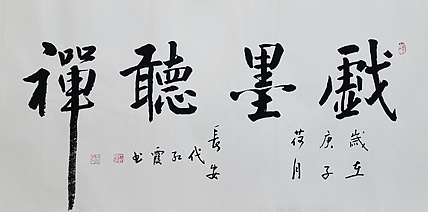 戲墨聽禪
歲在
庚子
荷月
長安
代紅霞
书